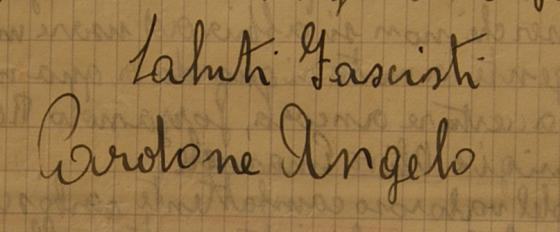 Saluti Fascisti
Cardone Angelo